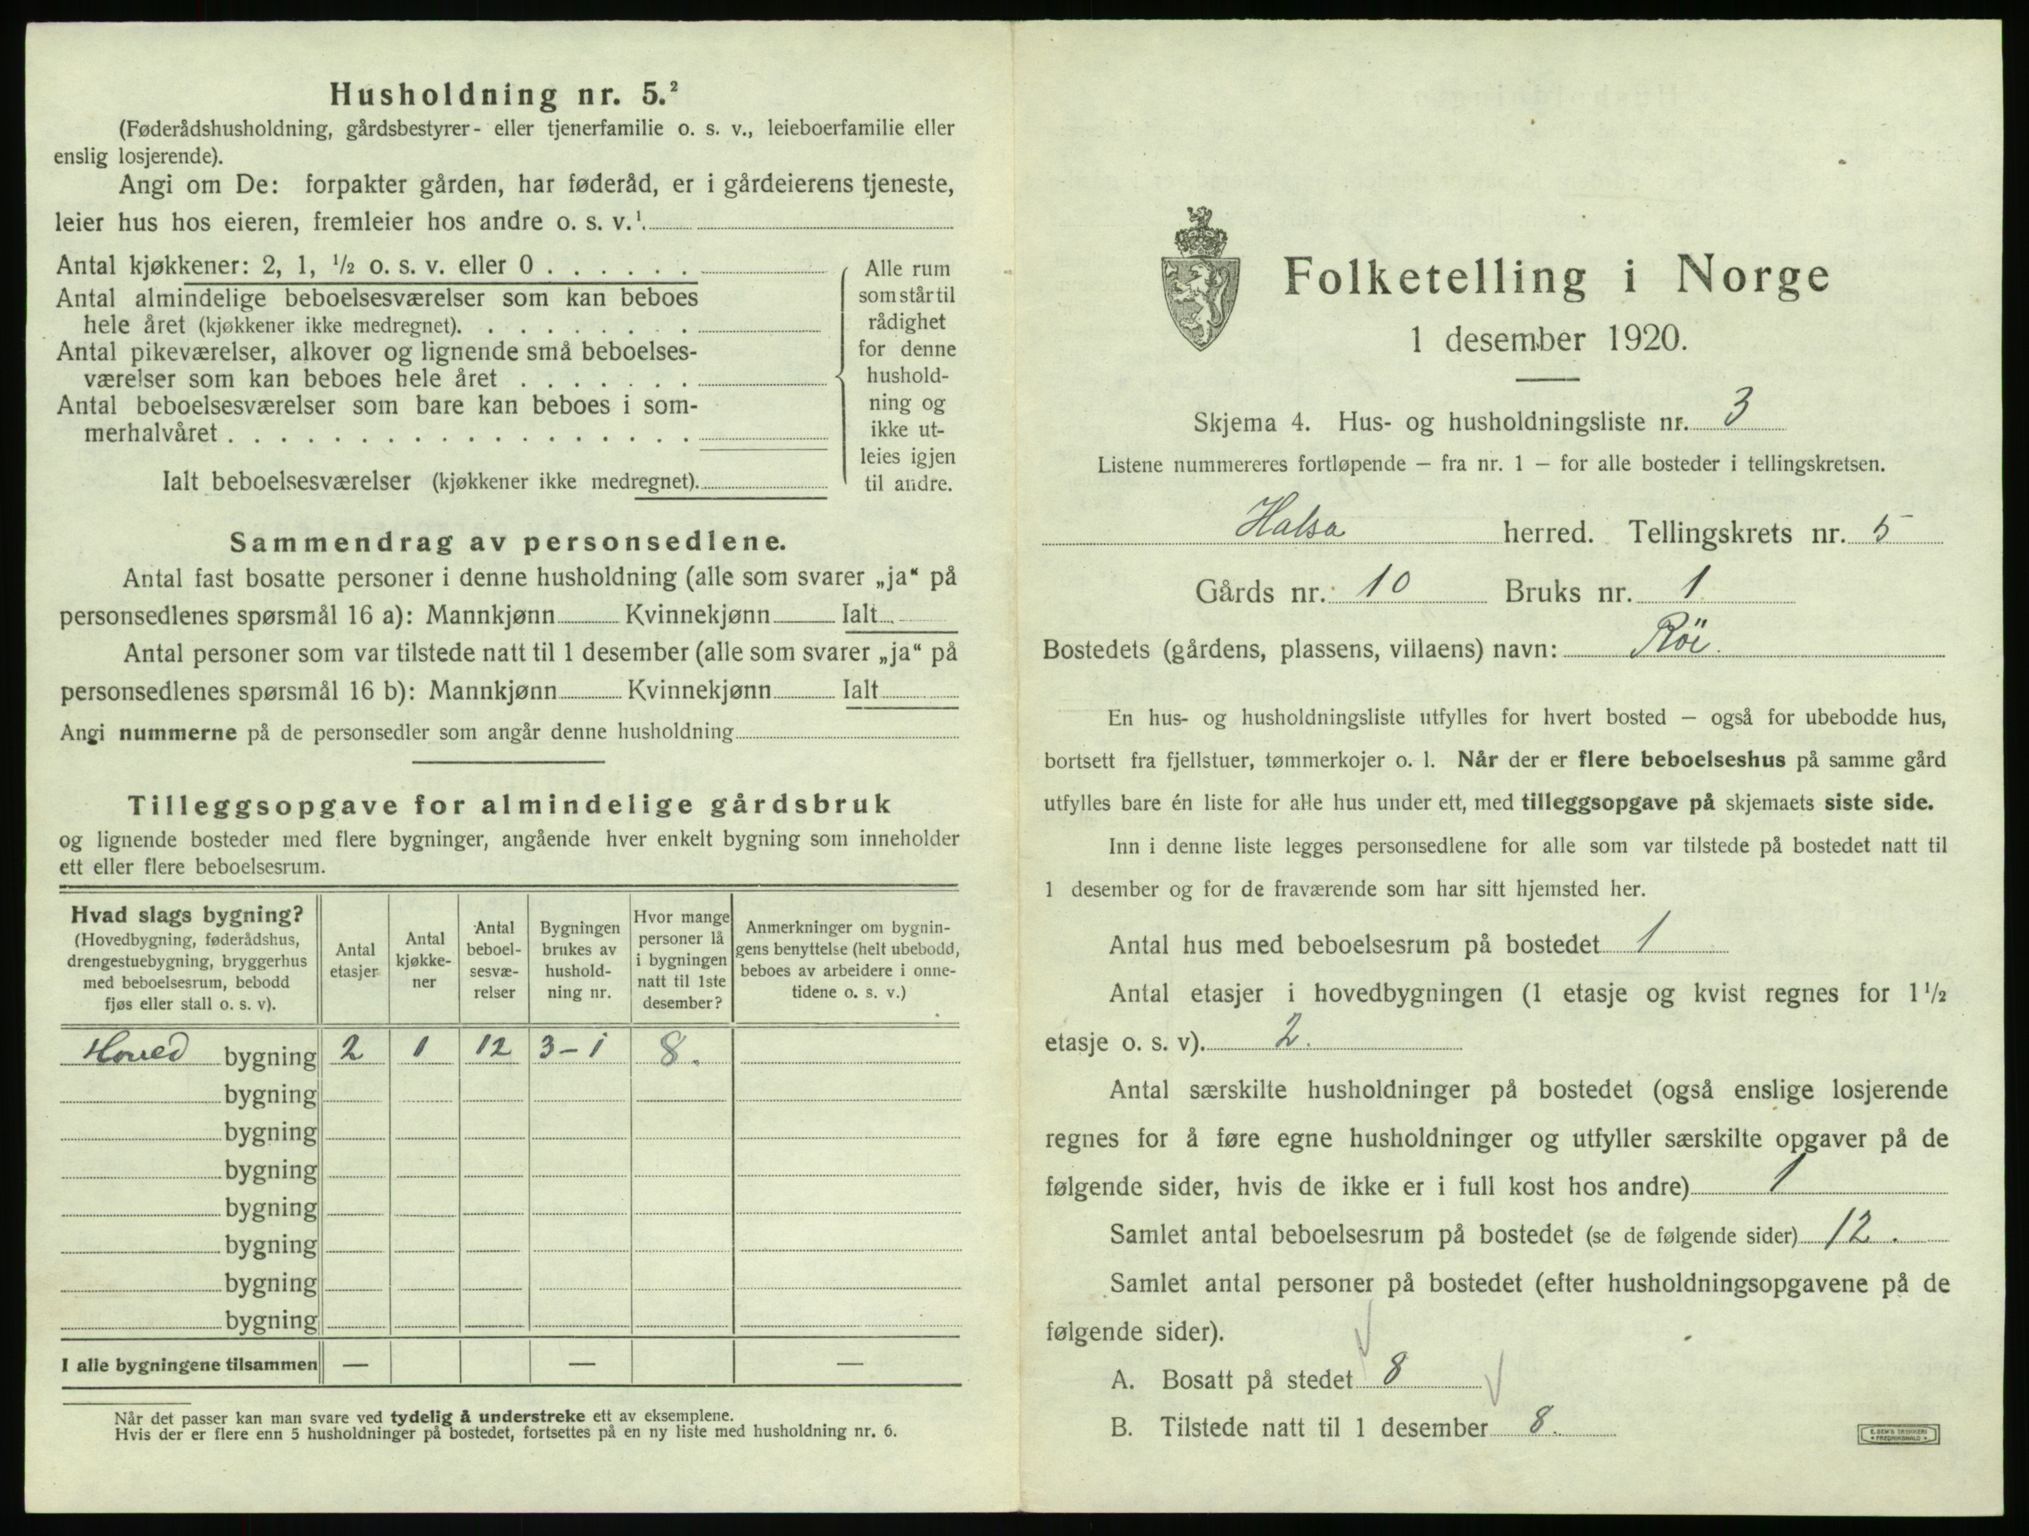 Husholdning nr. 5.²
(Føderådshusholdning, gårdsbestyrer- eller tjenerfamilie o. s. v., leieboerfamilie eller
enslig losjerende).
Angi om De: forpakter gården, har føderåd, er i gårdeierens tjeneste,
leier hus hos eieren, fremleier hos andre o. s. v.¹
Antal kjøkkener: 2, 1, ½ o. s. v. eller 0 . . . . . .
Antal almindelige beboelsesværelser som kan beboes
hele året (kjøkkener ikke medregnet). . . . . . . . .
Antal pikeværelser, alkover og lignende små beboelses-
værelser som kan beboes hele året . . . . . . .
Antal beboelsesværelser som bare kan beboes i som-
merhalvåret . . . . . . . . . . . . . . . . . .
Ialt beboelsesværelser (kjøkkener ikke medregnet).
Alle rum
som står til
rådighet
for denne
hushold-
ning og
ikke ut-
leies igjen
til andre.
Sammendrag av personsedlene.
Antal fast bosatte personer i denne husholdning (alle som svarer „ja“ på
personsedlenes spørsmål 16 a): Mannkjønn Kvinnekjønn Ialt
Antal personer som var tilstede natt til 1 desember (alle som svarer „ja“ på
personsedlenes spørsmål 16 b): Mannkjønn Kvinnekjønn Ialt
Angi nummerne på de personsedler som angår denne husholdning
Tilleggsopgave for almindelige gårdsbruk
og lignende bosteder med flere bygninger, angående hver enkelt bygning som inneholder
ett eller flere beboelsesrum.
Hvad slags bygning?
(Hovedbygning, føderådshus,
drengestuebygning, bryggerhus
med beboelsesrum, bebodd
fjøs eller stall o. s. v).
Antal
etasjer
Antal
kjøkke-
ner
Antal
beboel-
sesvæ-
relser
Bygningen
brukes av
hushold-
ning nr.
Hvor mange
personer lå
i bygningen
natt til 1ste
desember?
Anmerkninger om bygnin-
gens benyttelse (helt ubebodd,
beboes av arbeidere i onne-
tidene o. s. v.)
Hoved bygning 2 1 12 3 - 1 8.
bygning
bygning
bygning
bygning
bygning
bygning
bygning
I alle bygningene tilsammen — — —
Når det passer kan man svare ved tydelig å understreke ett av eksemplene.
Hvis der er flere enn 5 husholdninger på bostedet, fortsettes på en ny liste med husholdning nr. 6.
Folketelling i Norge
1 desember 1920.
Skjema 4. Hus- og husholdningsliste nr. 3
Listene nummereres fortløpende — fra nr. 1 — for alle bosteder i tellingskretsen.
Halsa herred. Tellingskrets nr. 5
Gårds nr. 10 Bruks nr. 1
Bostedets (gårdens, plassens, villaens) navn: Röi.
En hus- og husholdningsliste utfylles for hvert bosted — også for ubebodde hus,
bortsett fra fjellstuer, tømmerkojer o. l. Når der er flere beboelseshus på samme gård
utfylles bare én liste for alle hus under ett, med tilleggsopgave på skjemaets siste side.
Inn i denne liste legges personsedlene for alle som var tilstede på bostedet natt til
1 desember og for de fraværende som har sitt hjemsted her.
Antal hus med beboelsesrum på bostedet 1
Antal etasjer i hovedbygningen (1 etasje og kvist regnes for 1½
etasje o. s. v). 2.
Antal særskilte husholdninger på bostedet (også enslige losjerende
regnes for å føre egne husholdninger og utfyller særskilte opgaver på de
følgende sider, hvis de ikke er i full kost hos andre) 1
Samlet antal beboelsesrum på bostedet (se de følgende sider) 12.
Samlet antal personer på bostedet (efter husholdningsopgavene på de
følgende sider).
A. Bosatt på stedet 8
B. Tilstede natt til 1 desember 8.